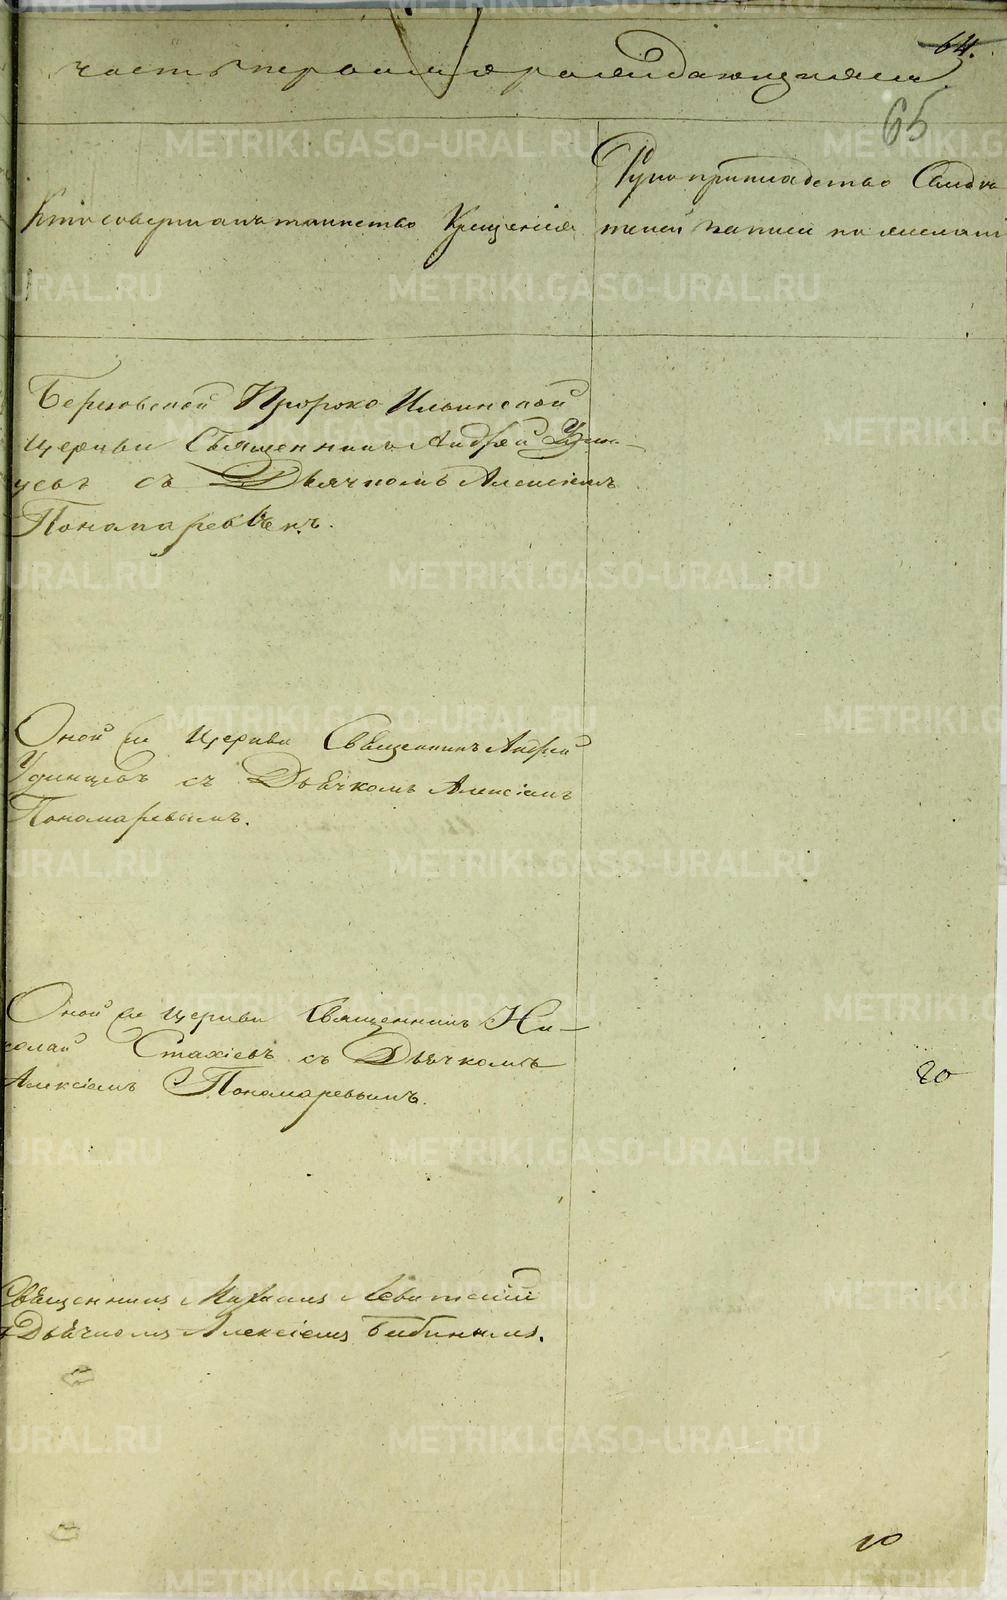 64.
часть первая о раждающихся
65
Кто совершалъ таинство Крещенія
Рукоприкладство Свидѣ
телей записи по желанію
Берковской Пророко Ильинской
церкви Священникъ Андрей Удин-
цевъ съ Дьячкомъ Алексіемъ
Пономаревымъ.
Оной же Церкви Священникъ Андрей
Удинцевъ съ Дьячкомъ Алексіемъ
Пономаревымъ.
Оной же церкви Священникъ Ни-
колай Стахіевъ съ Дьячкомъ
Алексіемъ Пономаревымъ.
20
Священникъ Левитскій
Дьячкомъ Алексіемъ Бибинымъ.
METRIKI.GASO-URAL.RU